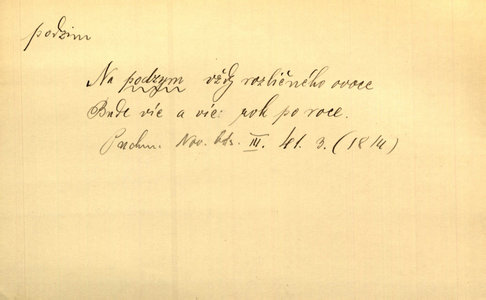 podzim
Na podzym vždy rozličného ovoce
Bude víc a víc: rok po roce.
Puchm. Nov. bás. III. 41. 3. (1814)